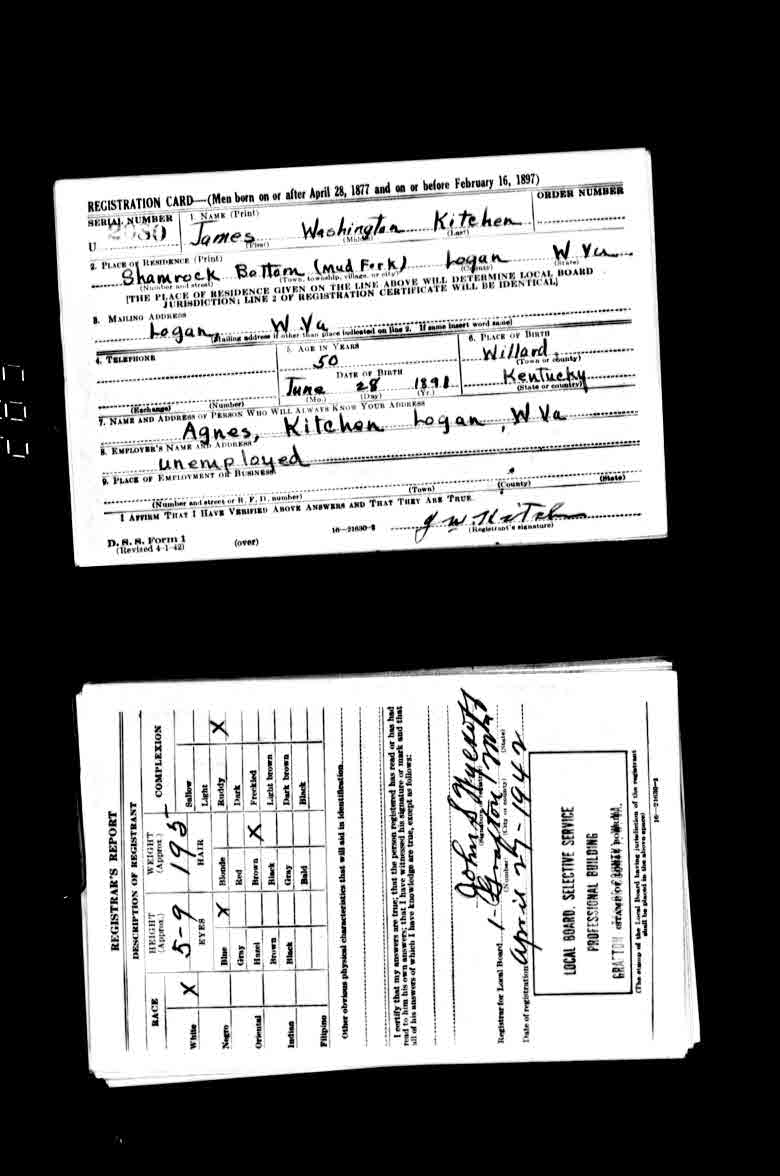 REGISTRATION CARD—(Men born on or after April 28, 1877 and on or before February 16, 1897)
SERIAL NUMBER 1. NAME (Print) ORDER NUMBER
U 2680 James Washington Kitchen
(First) (Middle) (Last)
2. PLACE OF RESIDENCE (Print)
Shamrock Bottom (Mud Fork) Logan W Va
(Number and street) (Town, township, village, or city) (County) (State)
[THE PLACE OF RESIDENCE GIVEN ON THE LINE ABOVE WILL DETERMINE LOCAL BOARD
JURISDICTION; LINE 2 OF REGISTRATION CERTIFICATE WILL BE IDENTICAL]
3. MAILING ADDRESS
Logan, W Va
[Mailing address if other than place indicated on line 2. If same insert word same]
4. TELEPHONE 5. AGE IN YEARS 6. PLACE OF BIRTH
50 Willard
(Town or county)
DATE OF BIRTH
June 28 1891 Kentucky
(Exchange) (Number) (Mo.) (Day) (Yr.) (State or country)
7. NAME AND ADDRESS OF PERSON WHO WILL ALWAYS KNOW YOUR ADDRESS
Agnes, Kitchen Logan, W Va
8. EMPLOYER'S NAME AND ADDRESS
unemployed
9. PLACE OF EMPLOYMENT OR BUSINESS
(Number and street or R. F. D. number) (Town) (County) (State)
I AFFIRM THAT I HAVE VERIFIED ABOVE ANSWERS AND THAT THEY ARE TRUE.
D. S. S. Form 1
(Revised 4-1-42) (over) 16—21630-2 (Registrant's signature)
REGISTRAR'S REPORT
DESCRIPTION OF REGISTRANT
RACE HEIGHT (Approx.) WEIGHT (Approx.) COMPLEXION
5-9 195
EYES HAIR
White X Sallow
Light
Negro Blue X Blonde Ruddy X
Gray Red Dark
Oriental Hazel Brown X Freckled
Brown Black Light brown
Indian Black Gray Dark brown
Bald Black
Filipino
Other obvious physical characteristics that will aid in identification
I certify that my answers are true; that the person registered has read or has had
read to him his own answers; that I have witnessed his signature or mark and that
all of his answers of which I have knowledge are true, except as follows:
John S
Registrar for Local Board 1- Grafton
(Number) (City or county) (State)
Date of registration April 27-1942
LOCAL BOARD, SELECTIVE SERVICE
PROFESSIONAL BUILDING
GRAFTON
(STAMP OF LOCAL BOARD)
(The stamp of the Local Board having jurisdiction of the registrant
shall be placed in the above space)
16—21630-2